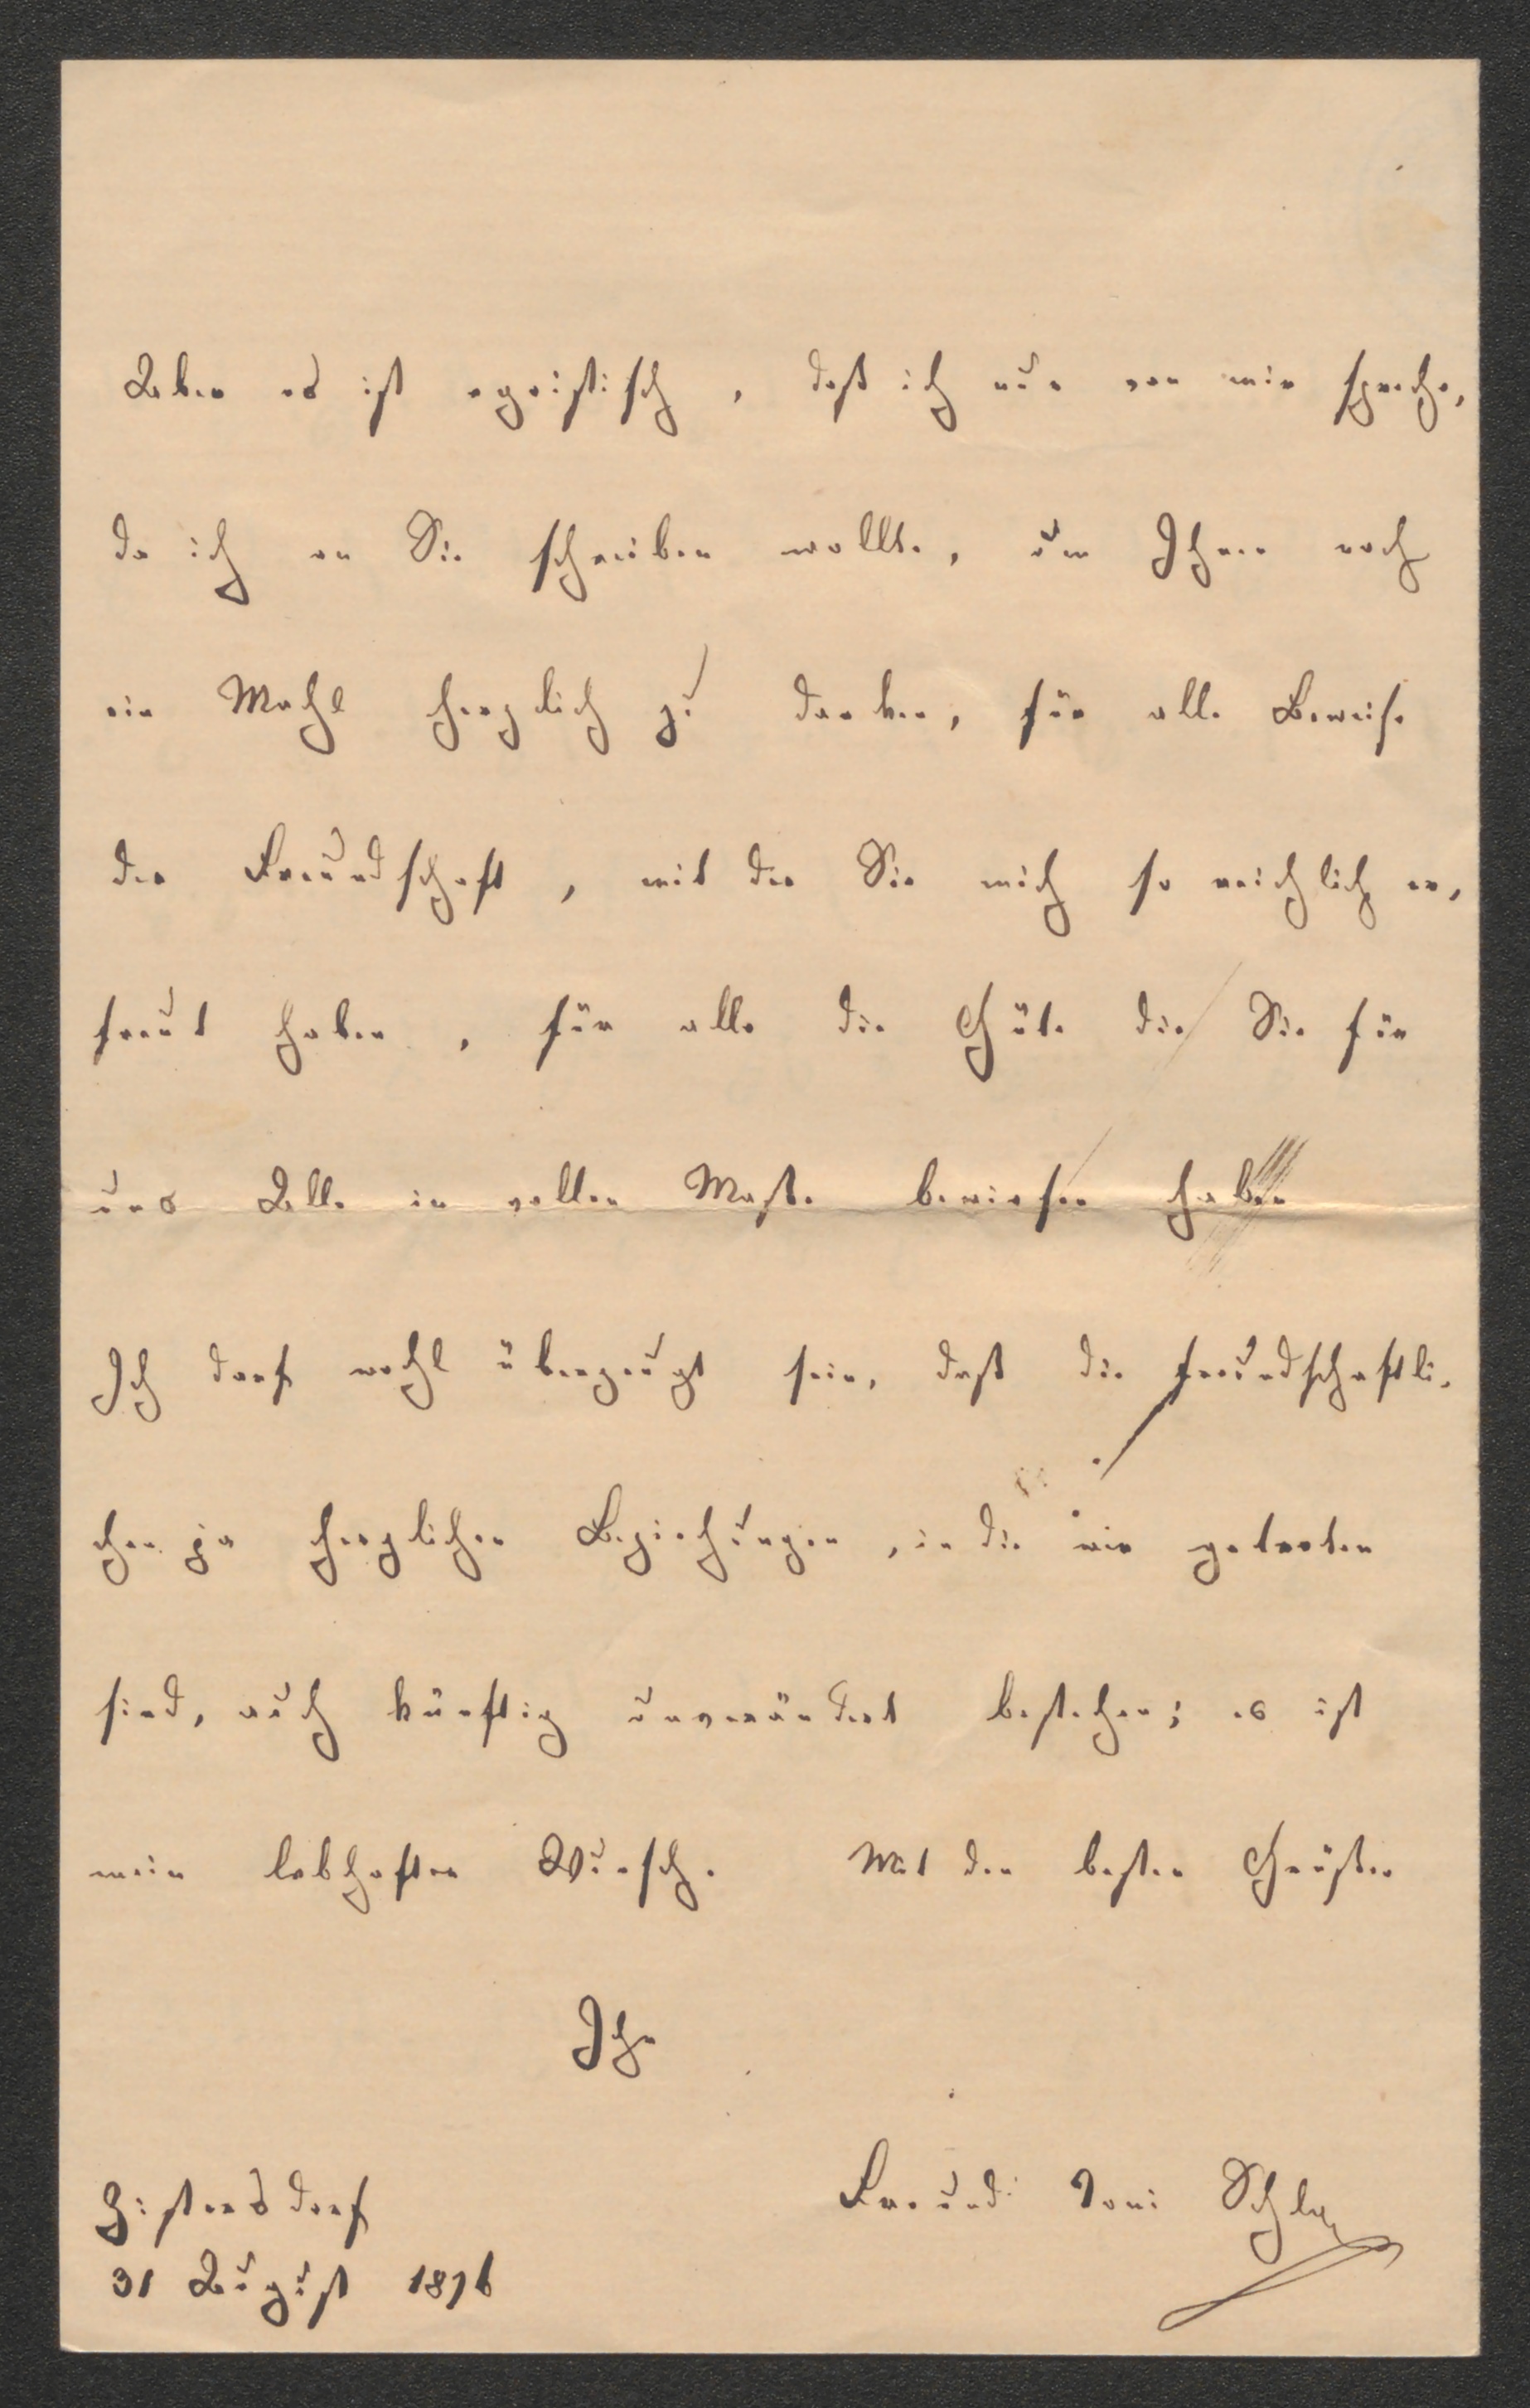 Aber es ist egoistisch, daß ich nur von mir spreche,
da ich an Sie schreiben wollte, um Ihnen noch
ein Mahl herzlich zu danken, für alle Beweise
der Freundschaft, mit der Sie mich so reichlich er,
freut haben, für alle die Güte die Sie für
uns Alle in vollen Maße bewiesen haben
Ich darf wohl überzeugt sein, daß die freundschaftli-
chen ja herzlichen Beziehungen, in die wir getreten
sind, auch künftig unverändert bestehen; es ist
mein lebhafter Wunsch. Mit den besten Grüßen
Ihr
Freund Toni
Zistersdorf
31 August 1876